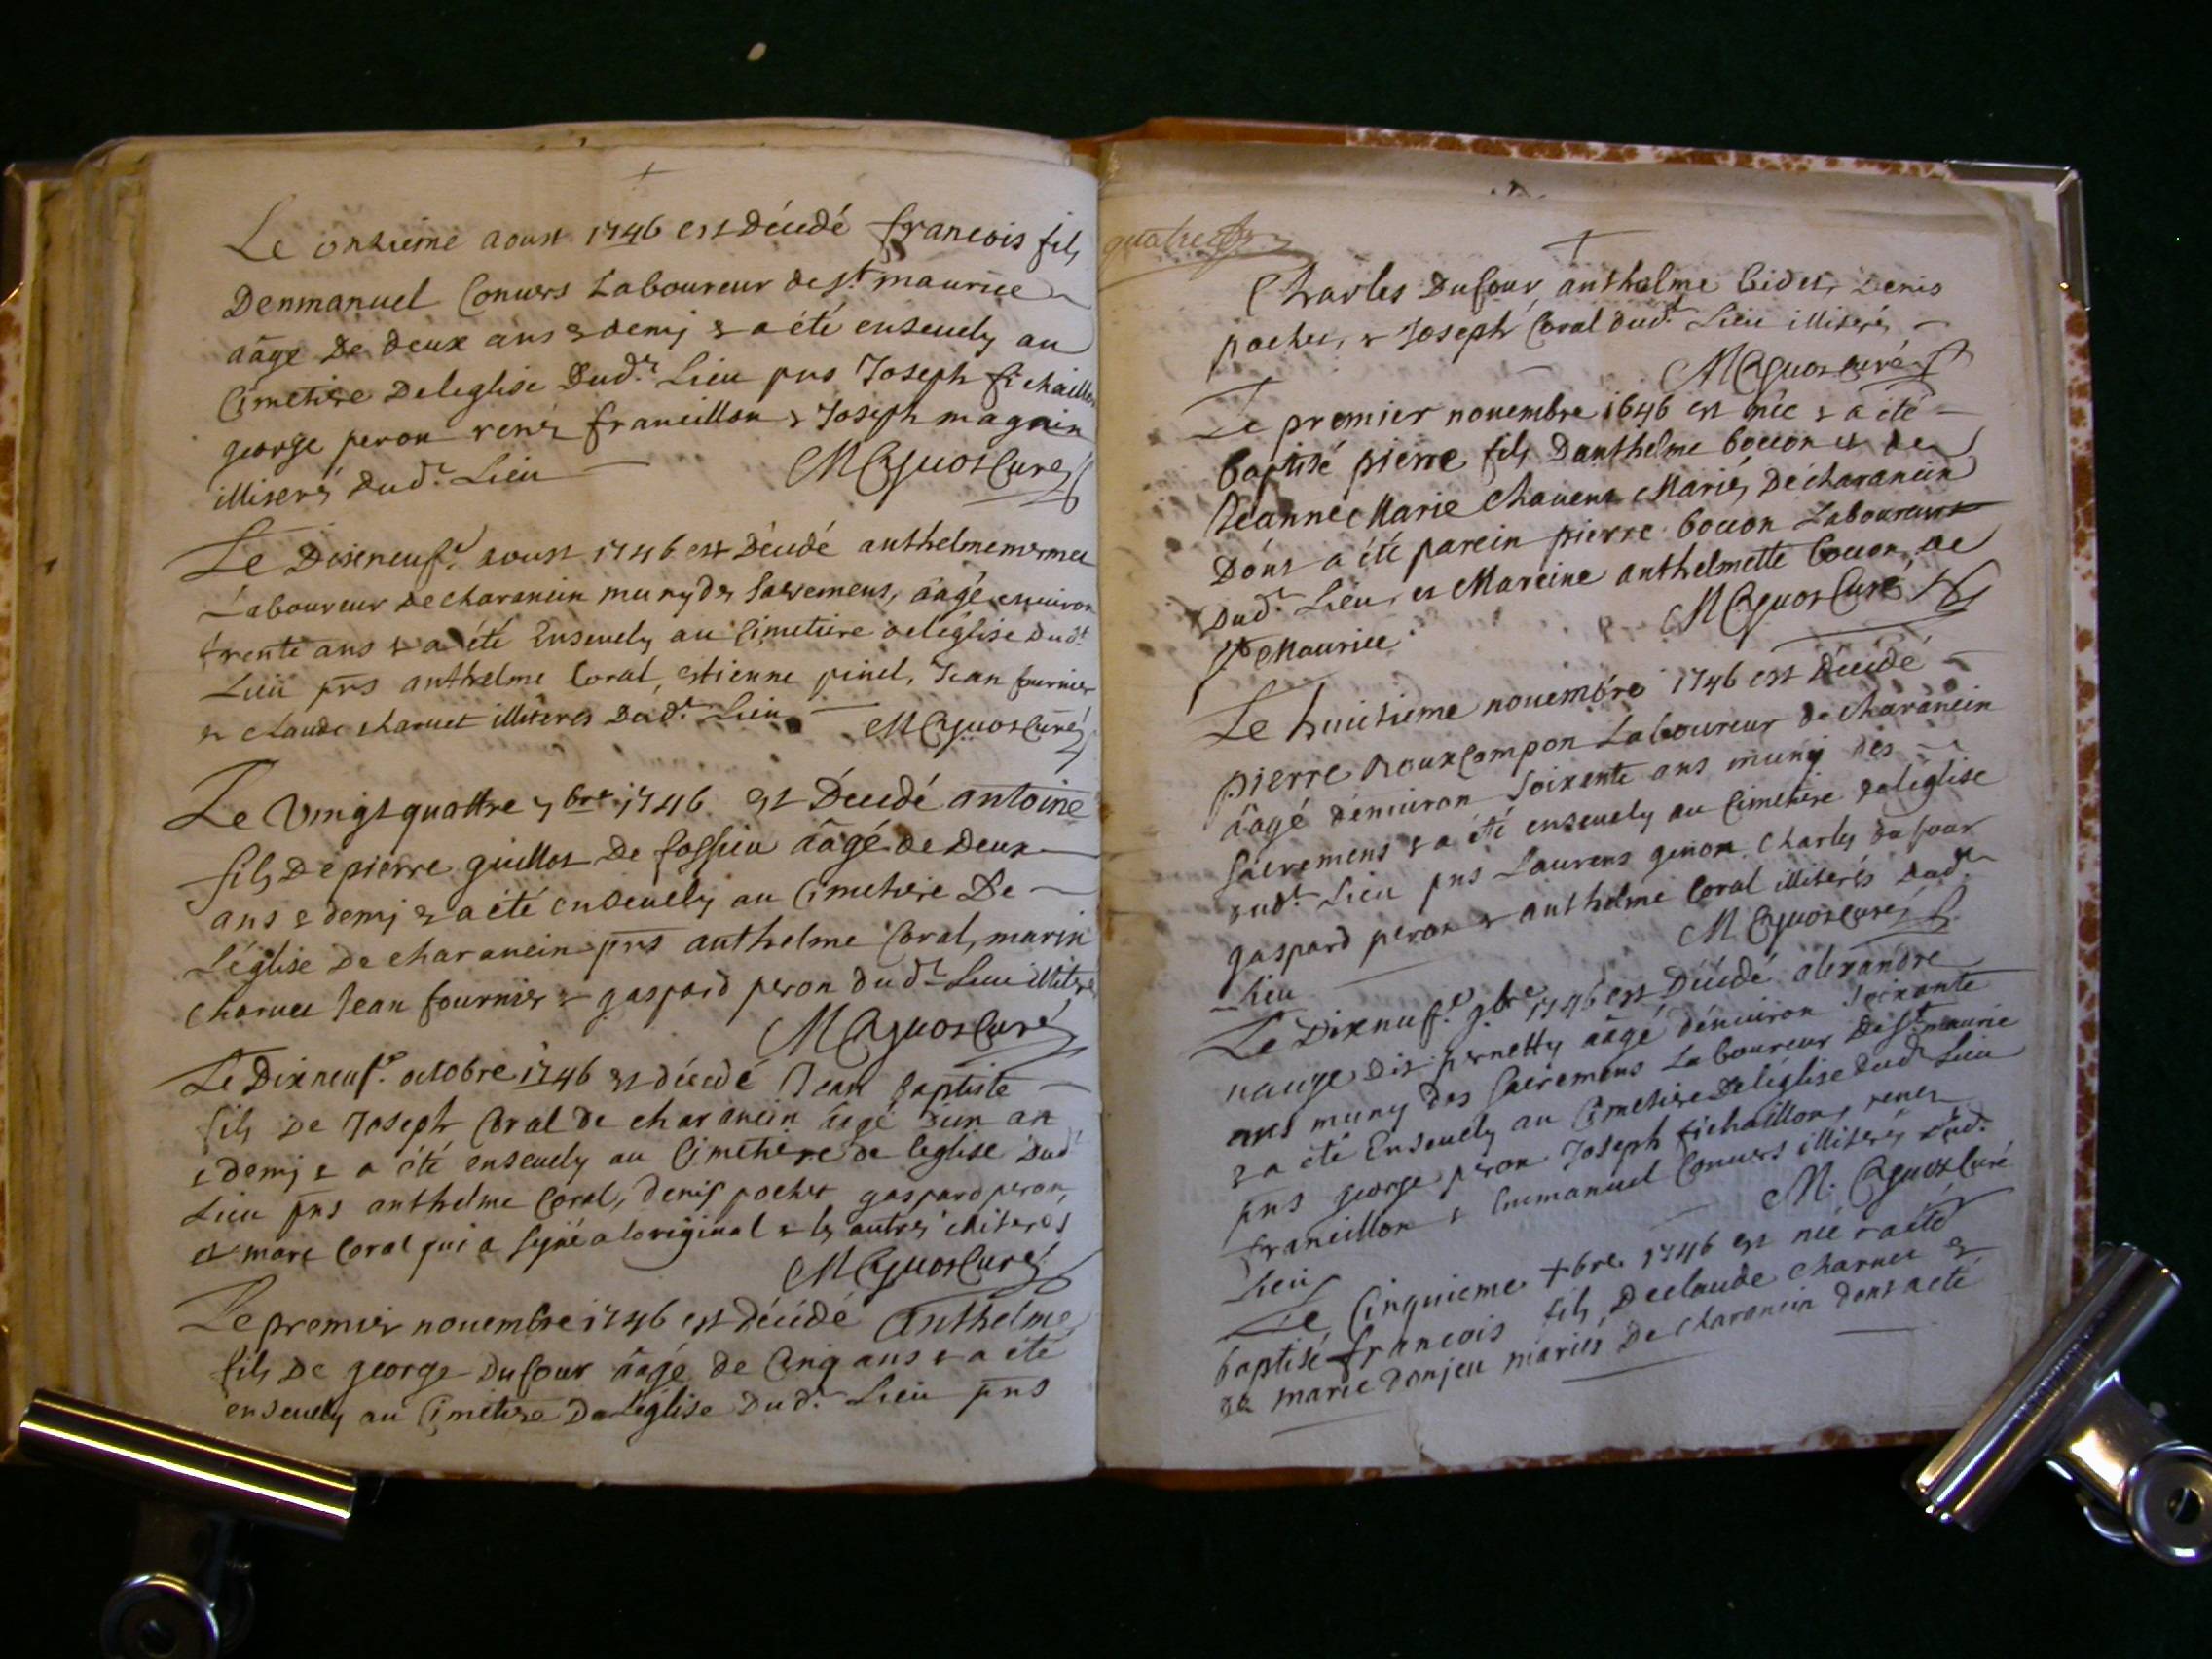 Le onzieme aoust 1746 est décédé francois fils
Denmanuel Convers Laboureur de st maurice
aâgé De deux ans & demj & a été ensevely au
Cimetiere De leglise Dudt Lieu pns Joseph fichaillon
george peron renez francillon & Joseph magnin
illiterés dudt Lieu MCaguos Curé
Le Diseneufe aoust 1746 est décédé anthelme mermet
Laboureur de charancin muny des sacremens, aâgé environ
trente ans & a été Ensevely au Cimetiere de léglise dudt
Lieu pns anthelme Coral, estienne pinel, Jean fournier
& claude charvet illiteres Dudt Lieu MCaguos Curé
Le Vingt quattre 7bre 1746 est Décédé antoine
fils De pierre guillot De fossieu aâgé de Deux
ans & demj & a été ensevely au Cimetiere De
Léglise De charancin pns anthelme Coral, marin
charvet Jean fournier & gaspard peron dudt Lieu illiteres
MCaguos Curé
Le Dixneufe octobre 1746 est décédé Jean baptiste
fils De Joseph Coral de charancin aâgé dun an
& demj & a été ensevely au Cimetiere de leglise Dudt
Lieu pns anthelme Coral, denis pochet gaspard peron,
et marc Coral qui a signé a loriginal & les autres illiterés
MCaguos Curé
Le premier novembre 1746 est décédé Anthelme
fils De george Dufour aâgé de Cinq ans & a été
ensevely au Cimetiere De Léglise Dudt Lieu pns
Charles Dufour anthelme bidet, Denis
pochet, & Joseph Coral dudt Lieu illiterés
MCaguos curé
Le premier novembre 1646 est née & a été
baptisé pierre fils Danthelme bocon et de
Jeanne Marie Chavent Mariés De charancin
Dont a été parein pierre bocon Laboureur
Dudt Lieu, et Mareine anthelmette bocon de
st Maurice. MCaguos Curé
Le huitieme novembre 1746 est Décédé
pierre Roux Compon Laboureur de charancin
aâgé denviron Soixente ans muny des
Sacremens & a été ensevely au Cimetiere de léglise
dudt Lieu pns Laurens genon Charles dufour
gaspard peron & anthelme Coral illiterés Dudt
Lieu MCaguos curé
Le Dixneufe 9bre 1746 est Décédé alexandre
nauge Dit pernetty aâgé denviron Soixante
ans muny des sacremens Laboureur De st maurice
& a été Ensevely au Cimetiere De léglise Dudt Lieu
pns george peron Joseph fichaillon, renez
francillon & Emmanuel Convers illiterés Dudt
Lieu M. Caguos Curé
Le Cinquieme Xbre 1746 est né & a été
baptisé francois fils De claude charvet &
de marie donjeu mariés De charancin dont a été